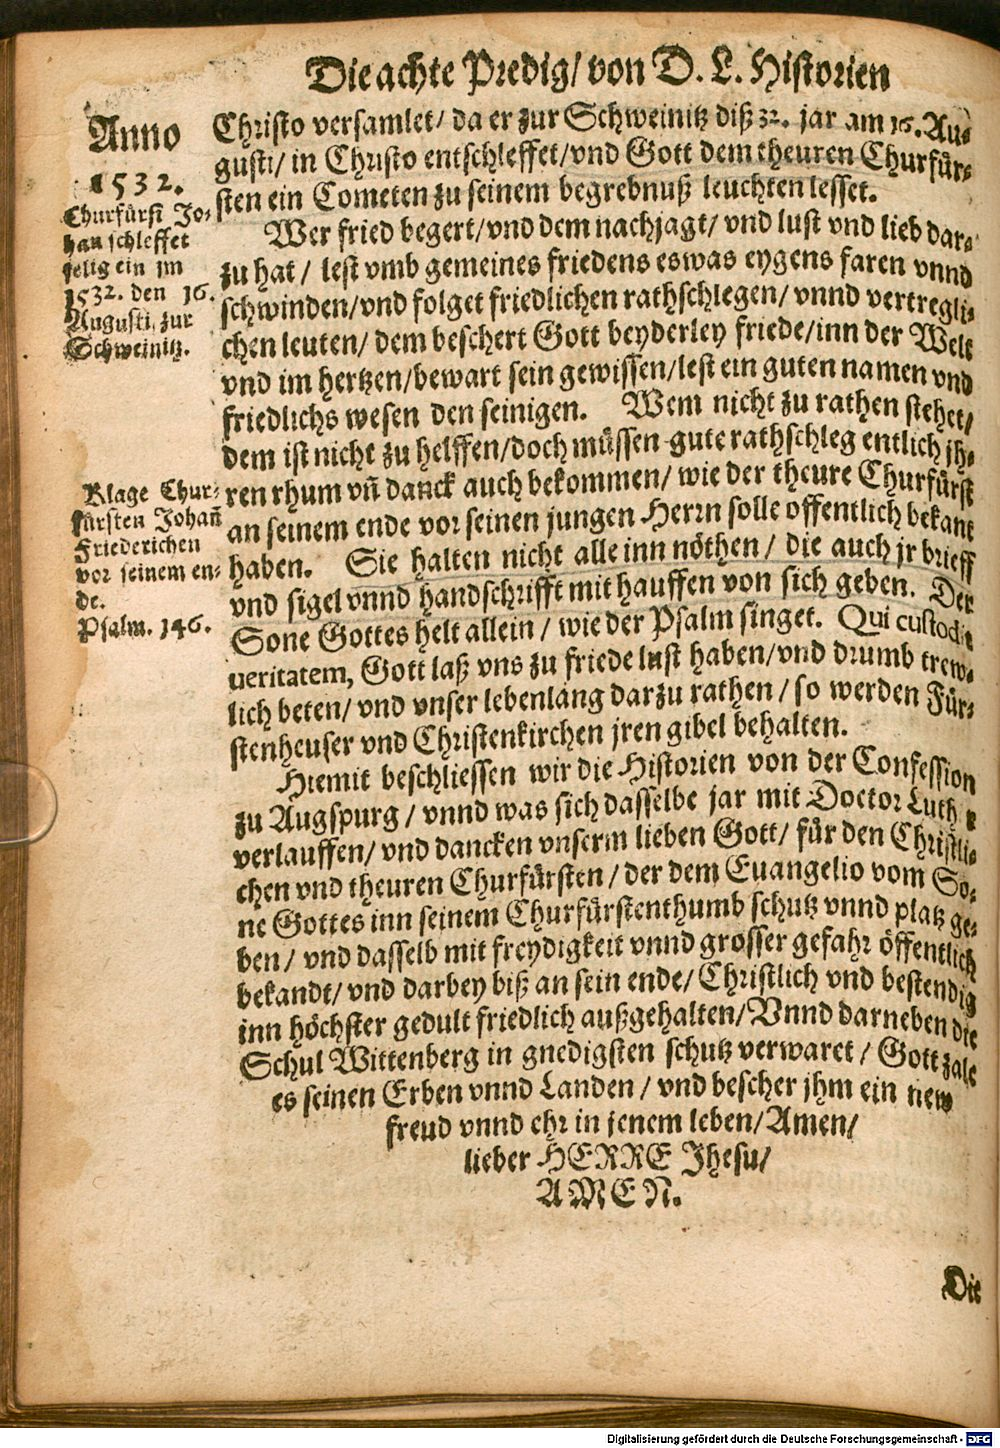 Die achte Predig/ von D. L. Historien
Anno
1532.
Churfürst Jo-
han schleffet
selig ein im
1532. den 16.
Augusti, zur
Schweinitz.
Christo versamlet/ da er zur Schweinitz diß 32. jar am 16. Au-
gusti/ in Christo entschleffet/ vnd Gott dem theuren Churfür-
sten ein Cometen zu seinem begrebnuß leuchten lesset.
Wer fried begert/ vnd dem nachjagt/ vnd lust vnd lieb dar-
zu hat/ lest vmb gemeines friedens eswas eygens faren vnnd
schwinden/ vnd folget friedlichen rathschlegen/ vnnd vertregli-
chen leuten/ dem beschert Gott beyderley friede/ inn der Welt
vnd im hertzen/ bewart sein gewissen/ lest ein guten namen vnd
friedlichs wesen den seinigen. Wem nicht zu rathen stehet/
dem ist nicht zu helffen/ doch müssen gute rathschleg entlich jh-
ren rhum vñ danck auch bekommen/ wie der theure Churfürst
an seinem ende vor seinen jungen Herrn solle offentlich bekant
haben. Sie halten nicht alle inn nöthen/ die auch jr brieff
vnd sigel vnnd handschrifft mit hauffen von sich geben. Der
Sone Gottes helt allein/ wie der Psalm singet. Qui custodit
ueritatem, Gott laß vns zu friede lust haben/ vnd drumb trew-
lich beten/ vnd vnser lebenlang darzu rathen/ so werden Für-
stenheuser vnd Christenkirchen jren gibel behalten.
Klage Chur-
fürsten Johañ
Friederichen
vor seinem en-
de.
Psalm. 146.
Hiemit beschliessen wir die Historien von der Confession
zu Augspurg/ vnnd was sich dasselbe jar mit Doctor Luth
verlauffen/ vnd dancken vnserm lieben Gott/ für den Christli-
chen vnd theuren Churfürsten/ der dem Euangelio vom So-
ne Gottes inn seinem Churfürstenthumb schutz vnnd platz ge-
ben/ vnd dasselb mit freydigkeit vnnd grosser gefahr öffentlich
bekandt/ vnd darbey biß an sein ende/ Christlich vnd bestendig
inn höchster gedult friedlich außgehalten/ Vnnd darneben die
Schul Wittenberg in gnedigsten schutz verwaret/ Gott zale
es seinen Erben vnnd Landen/ vnd bescher jhm ein new
freud vnnd ehr in jenem leben/ Amen/
lieber HERRE Jhesu/
AMEN.
Die
Digitalisierung gefördert durch die Deutsche Forschungsgemeinschaft - DFG